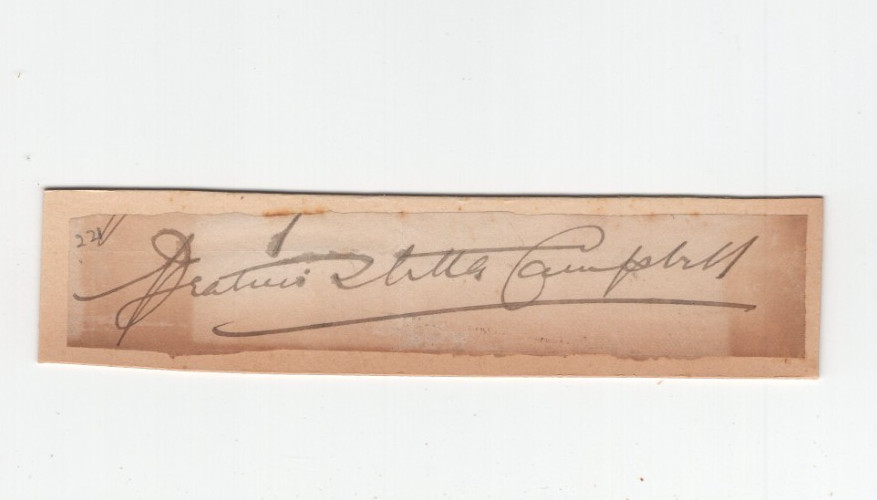 221
Beatrice Stella Campbell